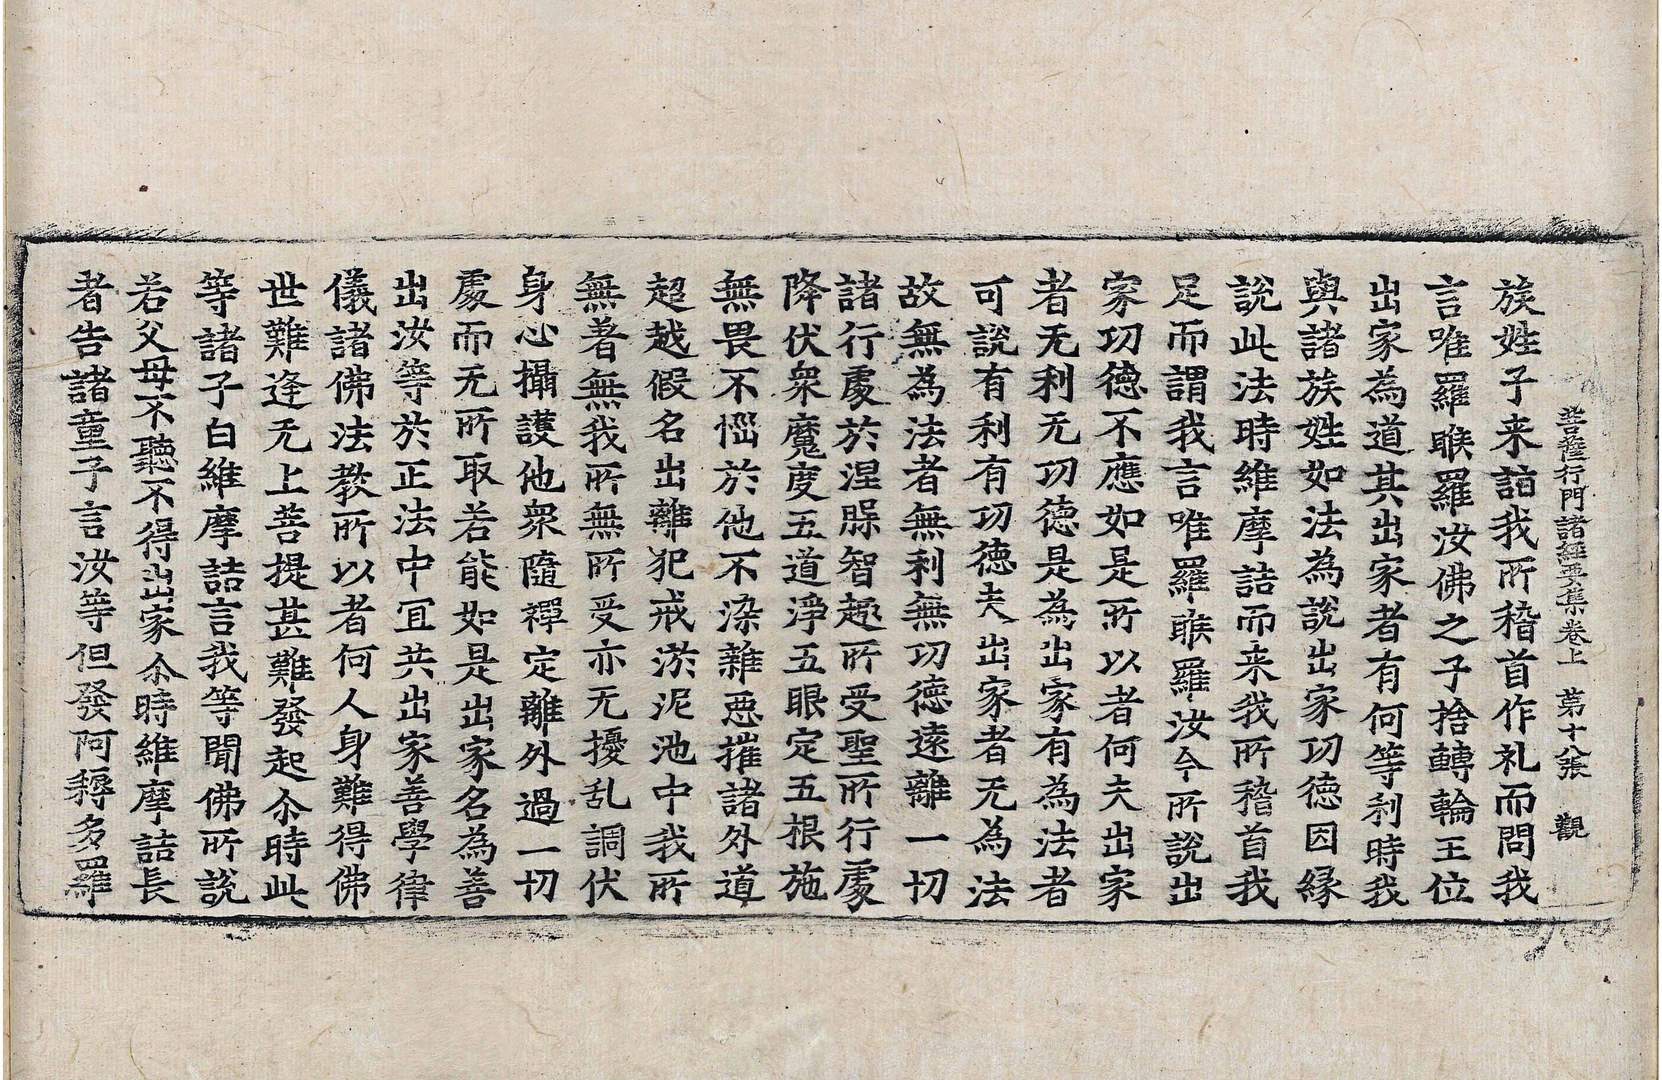 菩薩行門諸經要集卷上　苐十八張　觀
族姓子来詣我所稽首作礼而問我
言唯羅睺羅汝佛之子捨轉輪王位
出家為道其出家者有何等利時我
與諸族姓如法為說出家功德因緣
說此法時維摩詰而来我所稽首我
足而謂我言唯羅睺羅汝今所說出
家功德不應如是所以者何夫出家
者无利无功德是為出家有為法者
可說有利有功德夫出家者无為法
故無為法者無利無功德遠離一切
諸行處於涅槃智趣所受聖所行處
降伏衆魔度五道淨五眼定五根施
無畏不惱於他不染雜惡摧諸外道
超越假名出離犯戒淤泥池中我所
無著無我所無所受亦无擾乱調伏
身心攝護他衆隨禪定離外過一切
處而无所取若能如是出家名為善
出汝等於正法中宜共出家善學律
儀諸佛法教所以者何人身難得佛
世難逢无上菩提甚難發起尒時此
等諸子白維摩詰言我等聞佛所說
若父母不聽不得出家尒時維摩詰長
者告諸童子言汝等但發阿耨多羅